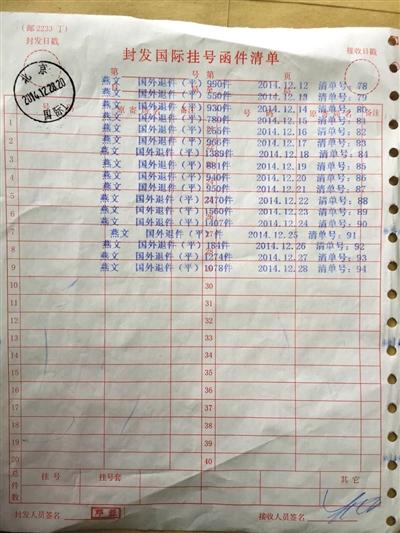 (邮2233丁)
封发日戳
封发国际挂号函件清单
接收日戳
北京
2014.12.28.20
燕文 国外退件(平)990件 2014.12.12 清单号:78
燕文 国外退件(平)550件 2014.12.13 清单号:79
燕文 国外退件(平)930件 2014.12.14 清单号:80
燕文 国外退件(平)780件 2014.12.15 清单号:81
燕文 国外退件(平)265件 2014.12.16 清单号:82
燕文 国外退件(平)966件 2014.12.17 清单号:83
燕文 国外退件(平)1389件 2014.12.18 清单号:84
燕文 国外退件(平)881件 2014.12.19 清单号:85
燕文 国外退件(平)940件 2014.12.20 清单号:86
燕文 国外退件(平)950件 2014.12.21 清单号:87
燕文 国外退件(平)2470件 2014.12.22 清单号:88
燕文 国外退件(平)1560件 2014.12.23 清单号:89
燕文 国外退件(平)1407件 2014.12.24 清单号:90
燕文 国外退件(平) 件 2014.12.25 清单号:91
燕文 国外退件(平)184件 2014.12.26 清单号:92
燕文 国外退件(平)1274件 2014.12.27 清单号:93
燕文 国外退件(平)1078件 2014.12.28 清单号:94
1
2
3
4
5
6
7
8
9
10 30
11 31
12 32
13 33
14 34
15 35
16 36
17 37
18 38
19 39
20 40
总件数 挂号 挂号套 其它
封发人员签名 接收人员签名